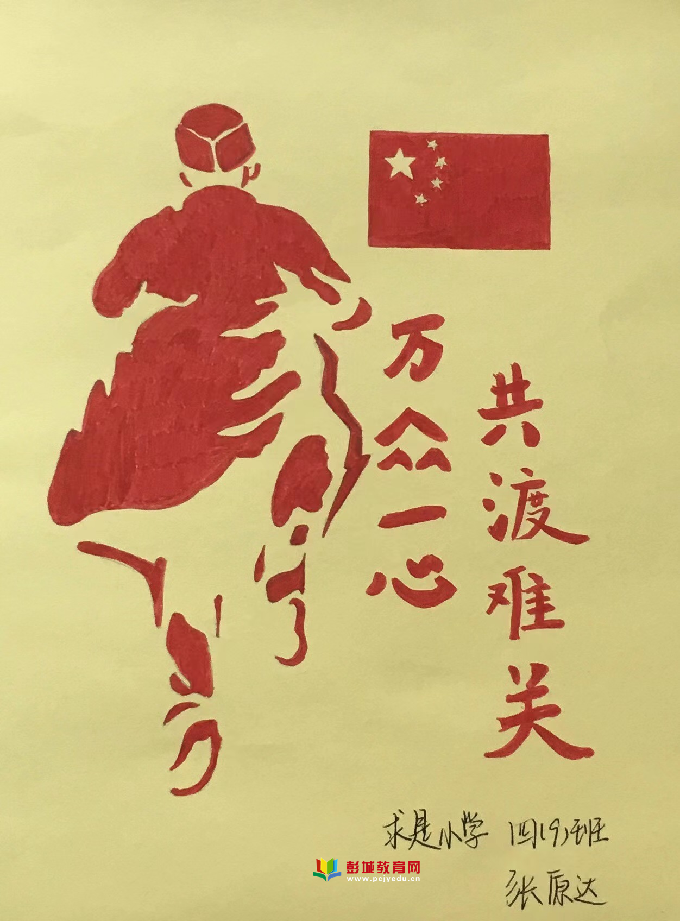 万众一心
共渡难关
求是小学 四(9)班
张原达
彭城教育网
www.pcjyedu.cn